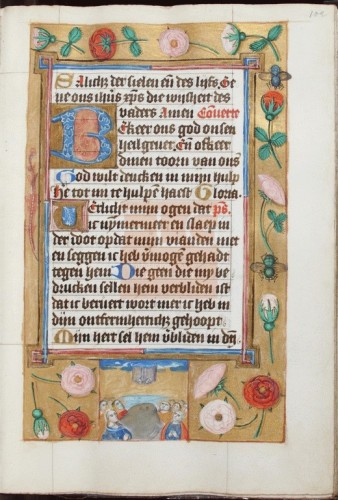 Salich der sielen en̄ des lijfs. Ge
ue ons ihūs xp̄s die wijsheit des
vaders Amen Conuerte
Ekeer ons god onsen
heilgeuer, En̄ ofkeer
dinen toorn van ons
God wilt dencken in mijn hulp
He tot mi te hulpē haest Gloria.
Erlicht mijn ogen dat p̄s.
ic nimmermeer en slaep in
der doot opdat mijn vianden niet
en seggen ic heb v̄moghē gehadt
tegen hem Die geen die my be
drucken sellen hem verbliden ist
dat ic beruert wort mer ic heb in
dijn ontfermherticҳ gehoopt
Mijn hert sel hem v̄bliden in dij